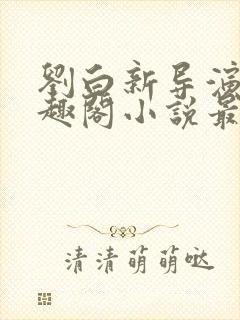 劉白新导演
趣閣小說最
清清萌萌哒